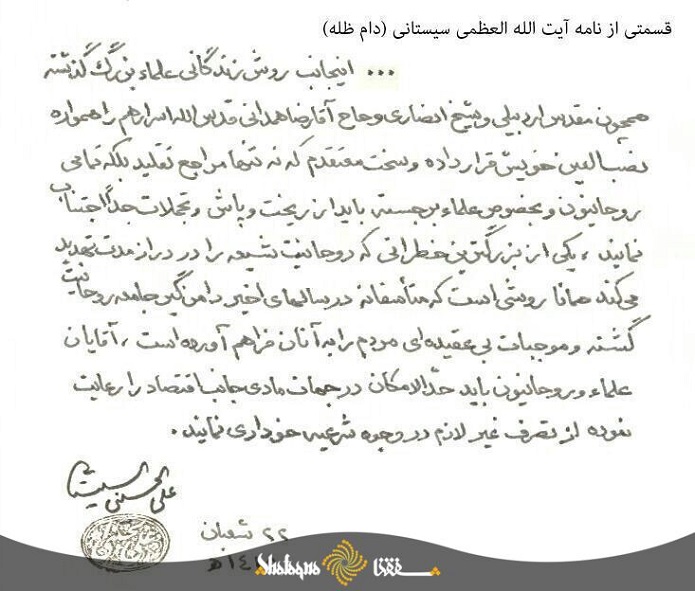 قسمتی از نامه آیت الله العظمی سیستانی (دام ظله)
... اینجانب روش زندگانی علماء بزرگ گذشته
همچون مقدس اردبیلی و شیخ انصاری و حاج آقا رضا همدانی قدس الله اسرارهم را همواره
نصب العین خویش قرار داده و سخت معتقدم که نه تنها مراجع تقلید بلکه تمامی
روحانیون و بخصوص علماء برجسته باید از ریخت و پاش و تجملات جداً اجتناب
نمایند ، یکی از بزرگترین خطراتی که روحانیت شیعه را در دراز مدت تهدید
می‌کند همانا روشی است که متأسفانه در سالهای اخیر دامن گیر جامعه روحانیت
گشته و موجبات بی عقیده‌ای مردم را به آنان فراهم آورده است ، آقایان
علماء و روحانیون باید حتّی الامکان در جهات مادی جانب اقتصاد را رعایت
نموده از تصرف غیر لازم در وجوه شرعیه خودداری نمایند .
علی الحسینی السیستانی
۲۲ شعبان
شفقنا
Shafaqna